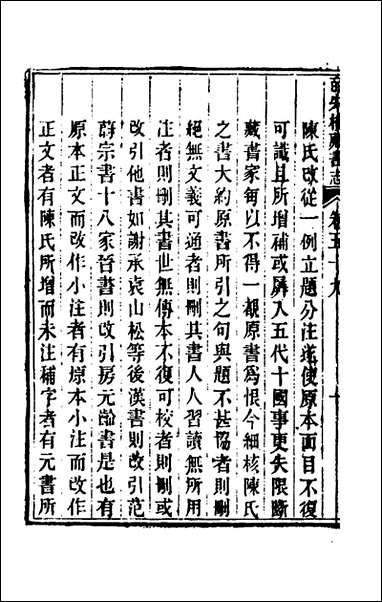 皕宋樓藏書志 卷五十九 十
陳氏改從一例立題分注遂使原本面目不復
可識且所增補或羼入五代十國事更失限斷
藏書家每以不得一覩原書爲恨今細核陳氏
之書大約原書所引之句與題不甚恊者則刪
絕無文義可通者則刪其書人人習讀無所用
注者則刪其書世無傳本不復可校者則刪或
改引他書如謝承袁山松等後漢書則改引范
蔚宗書十八家晉書則改引房元齡書是也有
原本正文而改作小注者有原本小注而改作
正文者有陳氏所增而未注補字者有元書所